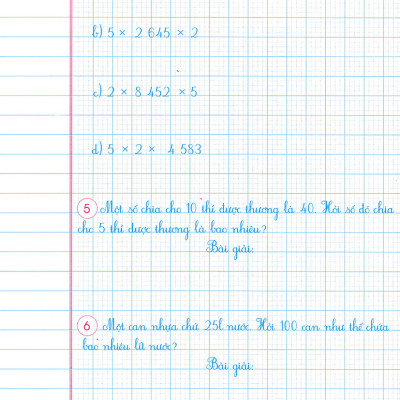 b) 5 × 2 645 × 2
c) 2 × 8 452 × 5
d) 5 × 2 × 4 583
5 Một số chia cho 10 thì được thương là 40. Hỏi số đó chia
cho 5 thì được thương là bao nhiêu?
Bài giải:
6 Một can nhựa chứ 25l nước. Hỏi 100 can như thế chứa
bao nhiêu lít nước?
Bài giải: